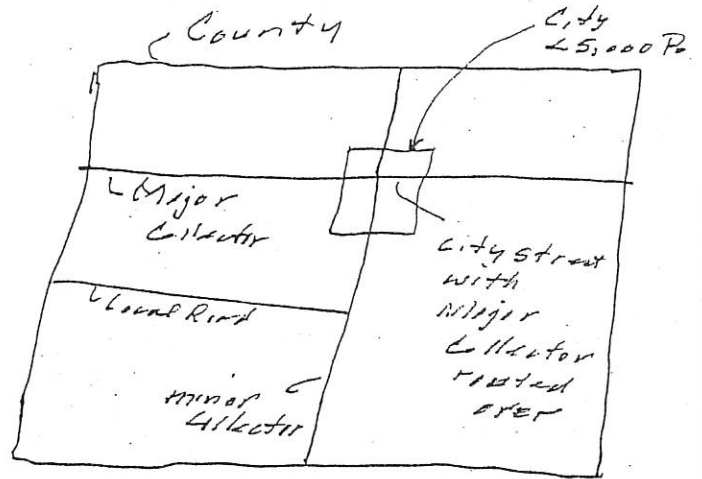 County
City
<5,000 Po
Major
Collector
Local Road
minor
Collector
City Street
with
Major
Collector
routed
over